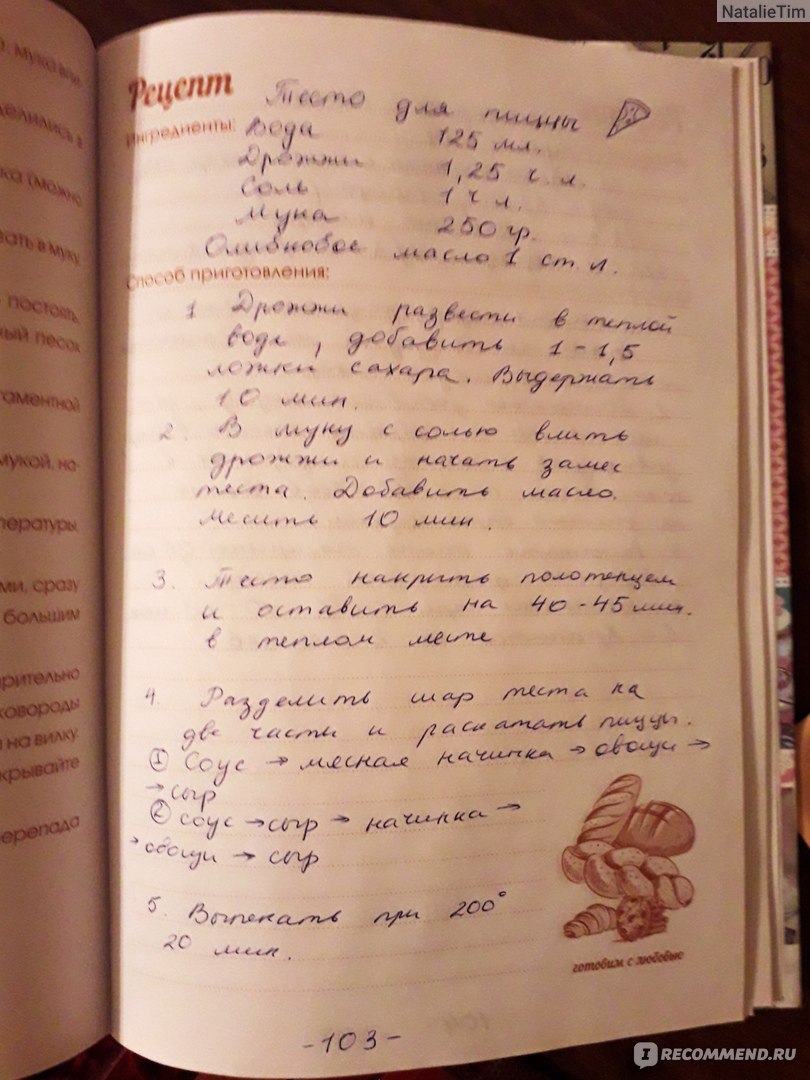 NatalieTim
. Мука впи
делились в
ка (можно
вать в муку
постоять.
ный песок
гаментной
мукой, но-
пературы.
ми, сразу
большим
арительно
ковороды
на вилку.
крывайте
перепада
Рецепт Тесто для пиццы
Ингредиенты: Вода 125 мл.
Дрожжи 1,25 ч.л.
Соль 1 ч л.
Мука 250 гр.
Оливковое масло 1 ст.л.
Способ приготовления:
1 Дрожжи развести в теплой
воде, добавить 1-1,5
ложки сахара. Выдержать
10 мин.
2. В муку с солью влить
дрожжи и начать замес
теста. Добавить масло.
Месить 10 мин.
3. Тесто накрыть полотенцем
и оставить на 40-45 мин.
в теплом месте
4. Разделить шар теста на
две части и раскатать пиццы.
① Соус → мясная начинка → овощи →
→ сыр
② соус → сыр → начинка →
→ овощи → сыр
5. Выпекать при 200°
20 мин.
готовим с любовью
-103-
104
IRECOMMEND.RU